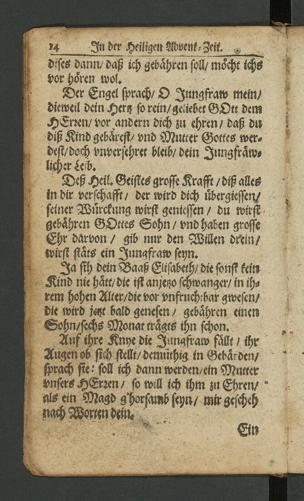 14 In der Heiligen Advent-Zeit.
dises dann/ daß ich gebähren soll/ möcht ichs
vor hören wol.
Der Engel sprach/ O Jungfraw mein/
dieweil dein Hertz so rein/ geliebet GOtt dem
HErren/ vor andern dich zu ehren/ daß du
diß Kind gebärest/ vnd Mutter Gottes wer-
dest/ doch vnversehret bleib/ dein Jungfräw-
licher Leib.
Deß Heil. Geistes grosse Krafft/ diß alles
in dir verschafft/ der wird dich übergiessen/
seiner Würckung wirst geniessen/ du wirst
gebähren GOttes Sohn/ vnd haben grosse
Ehr darvon/ gib nur den Willen drein/
wirst stäts ein Jungfraw seyn.
Ja sih dein Baaß Elisabeth/ die sonst kein
Kind nie hätt/ die ist anjetzo schwanger/ in ih-
rem hohen Alter/ die vor vnfruchtbar gwesen/
die wird jetzt bald genesen/ gebähren einen
Sohn/ sechs Monat trägts ihn schon.
Auf ihre Knye die Jungfraw fällt/ ihr
Augen ob sich stellt/ demüthig in Gebärden/
sprach sie: soll ich dann werden/ ein Mutter
vnsers HErren/ so will ich ihm zu Ehren/
als ein Magd g'horsamb seyn/ mir gescheh
nach Worten dein.
Ein